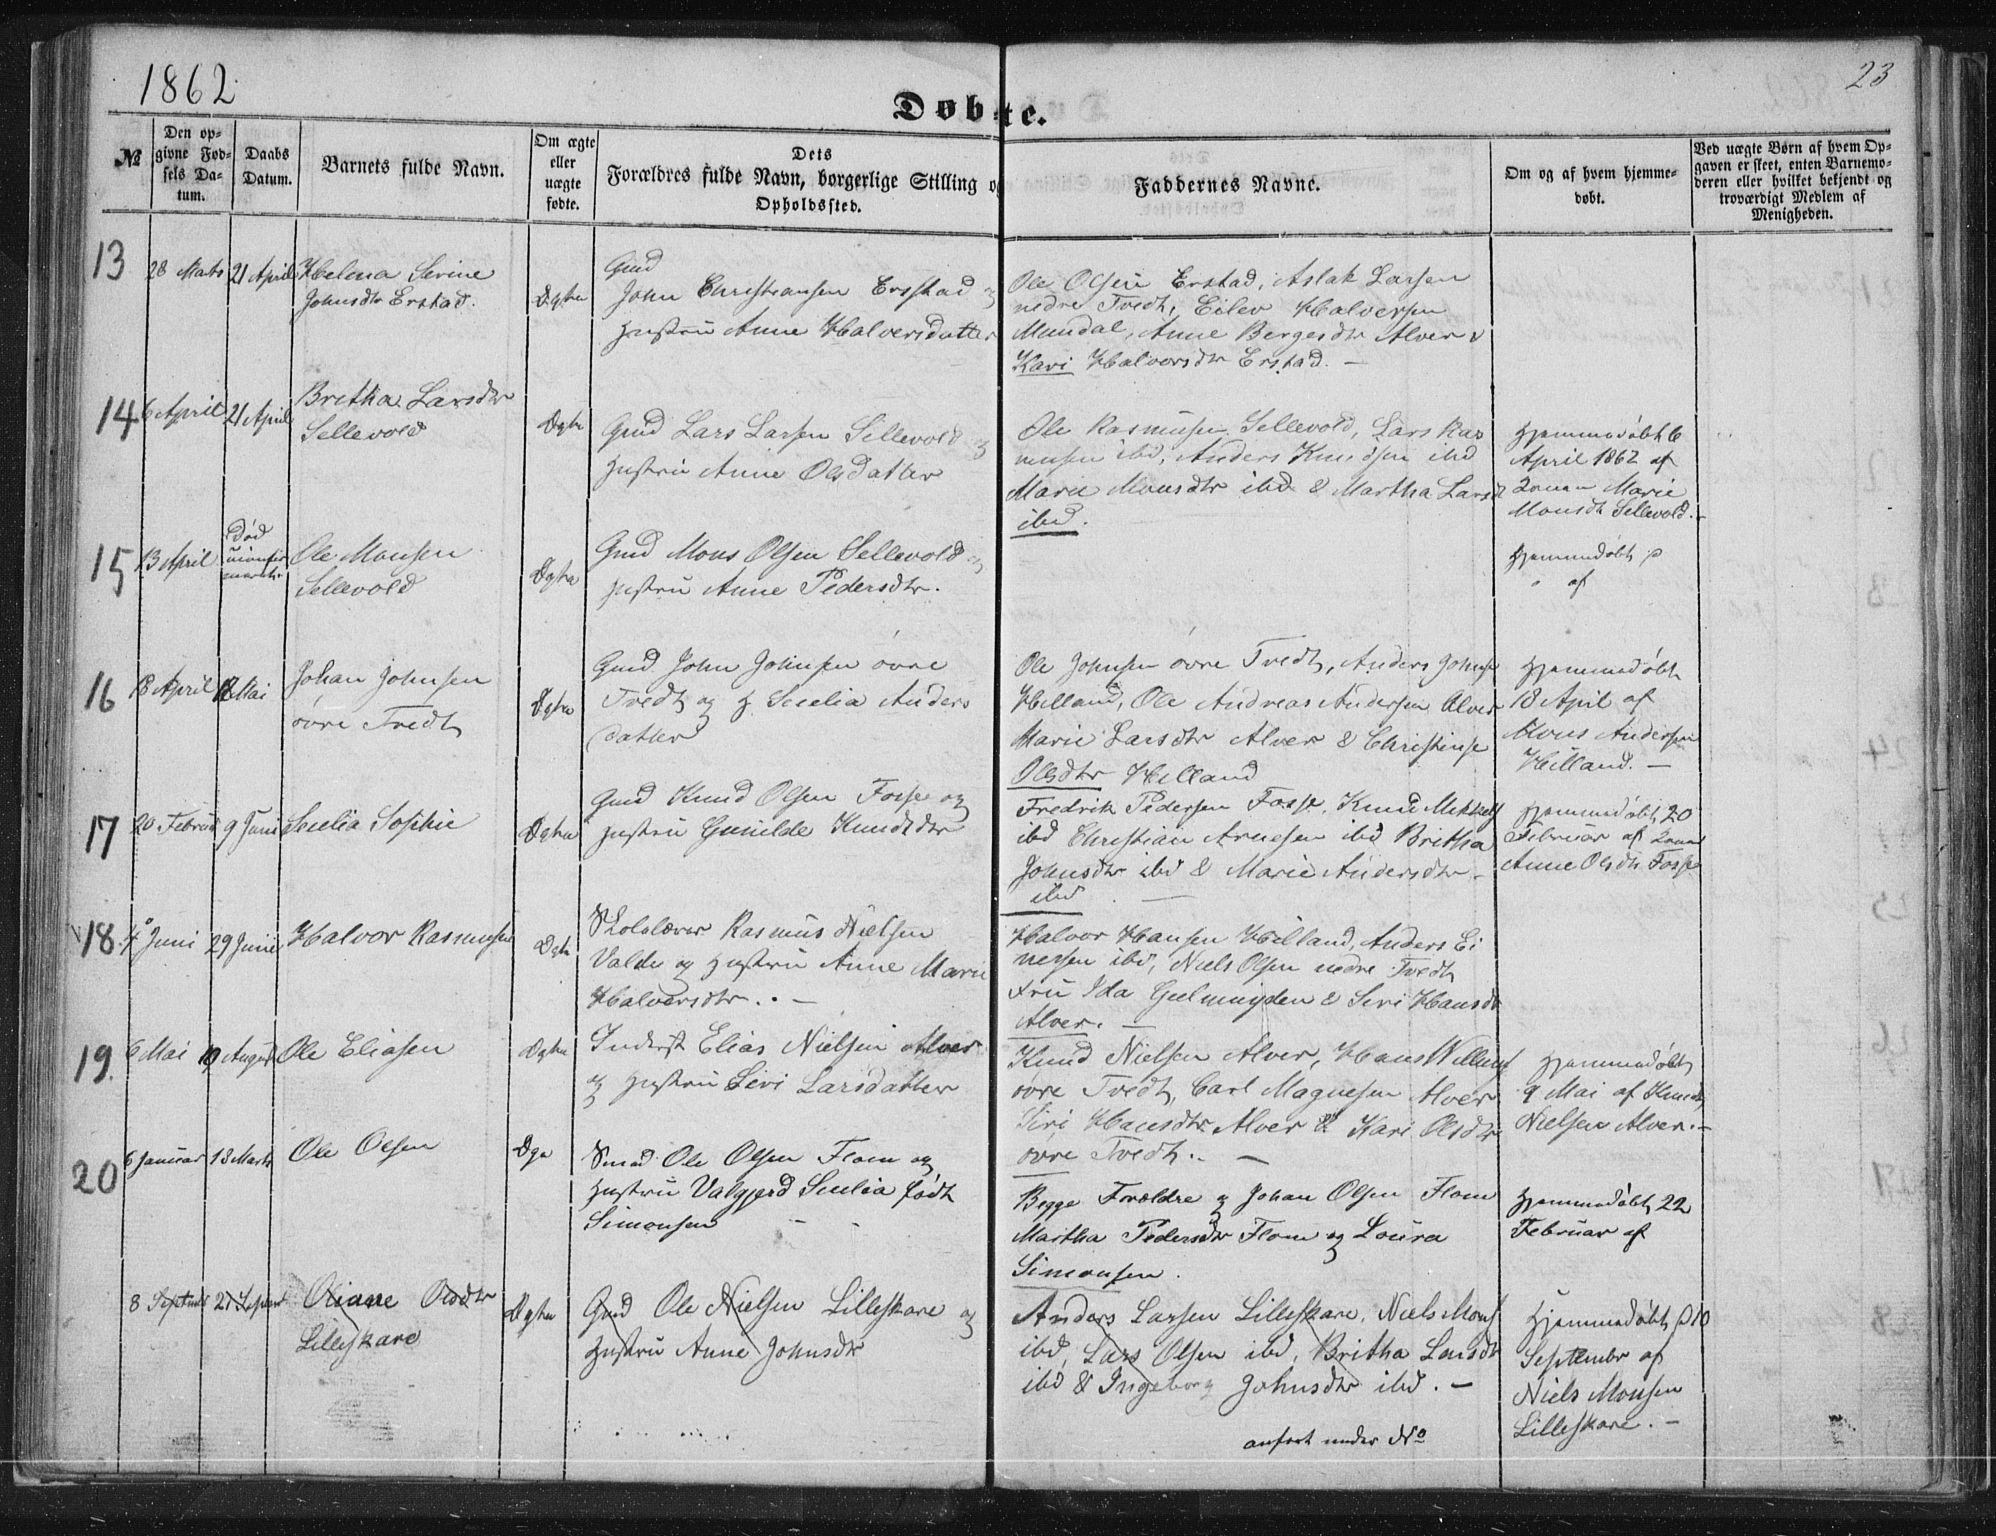 1862
23
Døbte.
№
Den op-
givne Fød-
sels Da-
tum.
Daabs
Datum.
Barnets fulde Navn.
Om ægte
eller
uægte
fødte.
Dets
Forældres fulde Navn, borgerlige Stilling o
Opholdssted.
Faddernes Navne.
Om og af hvem hjemme-
døbt.
Ved uægte Børn af hvem Op-
gaven er skeet, enten Barnemo-
deren eller hvilket bekjendt og
troværdigt Medlem af
Menigheden.
13
28 Marts
21 April
Helena Serine
Johnsdtr Erstad.
Ægte
Gmd
John Christiansen Erstad og
Hustru Anne Halversdatter
Ole Olsen Erstad, Aslak Larsen
nedre Tvedt, Eilev Halversen
Mundal, Anne Bergesdtr Alver &
Kari Halvorsdtr Erstad. —
14
6 April
21 April
Britha Larsdtr
Sellevold
Ægte
Gmd Lars Larsen Sellevold og
Hustru Anne Olsdatter
Ole Rasmusen Sellevold, Lars Ras
musen ibd, Anders Knudsen ibd
Marie Monsdtr ibd & Martha Larsd
ibd.
Hjemmedøbt 6
April 1862 af
Marie
Monsdt Sellevold. -
15
13 April
Død
Ole Monsen
Sellevold
Ægte
Gmd Mons Olsen Sellevold og
Hustru Anne Pedersdtr.
Hjemmedøbt
af
16
18 April
Mai
Johan Johnsen
øvre Tvedt
Ægte
Gmd John Johnsen øvre
Tvedt og H Secelia Anders
datter
Ole Johnsen øvre Tvedt, Anders Johns
Hilland, Ole Andreas Andersen Alver
Marie Larsdtr Alver & Christine
Olsdtr Hilland
Hjemmedøbt
18 April af
Mons Andersen
Hilland. —
17
20 Februar
9 Juni
Secelia Sophie
Ægte
Gmd Knud Olsen Fosse og
Hustru Gunilde Knudsdtr
Fredrik Pedersen Fosse, Knud Mikkels
ibd Christian Arnesen ibd Britha
Johnsdtr ibd & Marie Andersdtr
ibd. —
Hjemmedøbt 20
Februar af
Anne Olsdtr Fosse
18.
4 Juni
29 Juni
Halvor Rasmusen
Ægte
Skolelærer Rasmus Nielsen
Valde og Hustru Anne Marie
Halversdtr. . —
Halvor Hansen Hilland, Anders Ei
nersen ibd, Niels Olsen nedre Tvedt
Fru Ida Geelmuyden & Siri Hansdt
Alver. —
19.
6 Mai
10 August
Ole Eliasen
Ægte
Inderst Elias Nielsen Alver
og Hustru Siri Larsdatter
Knud Nielsen Alver, Hans Willums
øvre Tvedt, Carl Magnesen Alver
Siri Hansdtr Alver & Kari Olsdtr
øvre Tvedt. . —
Hjemmedøbt
9 Mai af Knud
Nielsen Alver. -
20
6 Januar
18 Marts
Ole Olsen
Æge
Smed Ole Olsen Flom og
Hustru Valgjerd Secelia født
Simonsen
Begge Forældre og Johan Olsen Flom
Martha Pedersdtr Flom og Loura
Simonsen.
Hjemmedøbt 22
Februar af
8 Septembr
21 Septembr
Oliane Olsdtr
Lilleskare
Ægte
Gmd Ole Nielsen Lilleskare og
Hustru Anne Johnsdtr
Anders Larsen Lilleskare, Niels Mons
ibd, Lars Olsen ibd, Britha Larsdt
ibd & Ingeborg Johnsdtr ibd. —
Hjemmedøbt 10
Septembr af
Niels Monsen
Lilleskare. —
anført under №